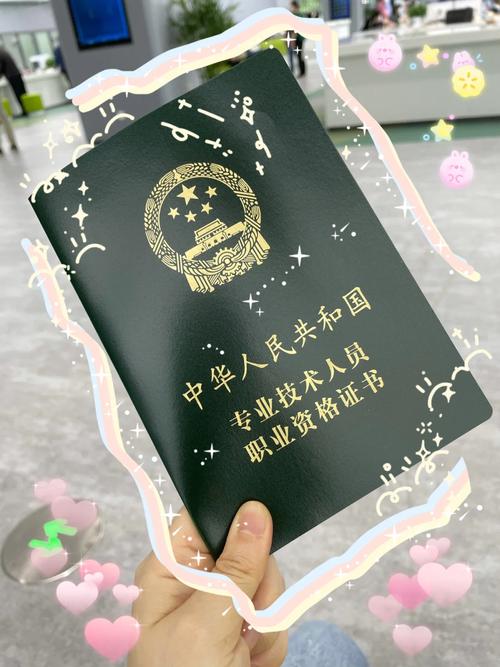 中华人民共和国
专业技术人员
职业资格证书